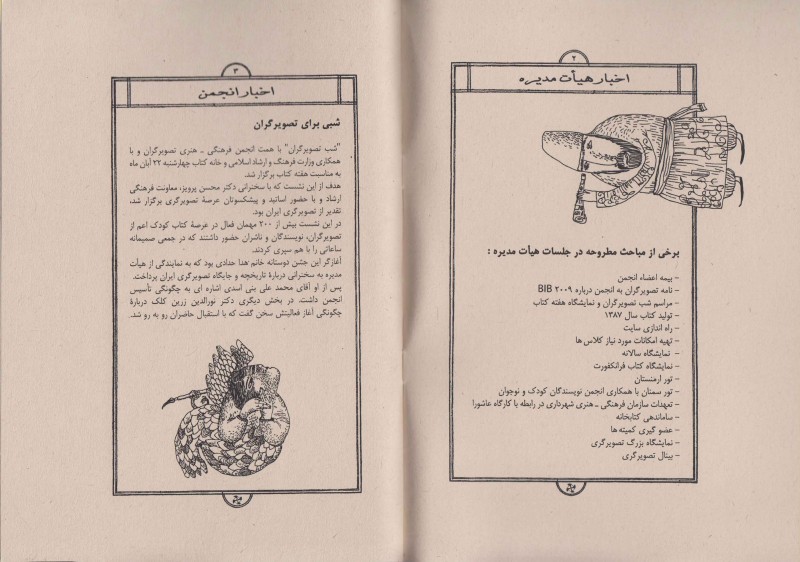 ۲
اخبار هیأت مدیره
برخی از مباحث مطروحه در جلسات هیأت مدیره :
- بیمه اعضاء انجمن
- نامه تصویرگران به انجمن درباره BIB ۲۰۰۹
- مراسم شب تصویرگران و نمایشگاه هفته کتاب
- تولید کتاب سال ۱۳۸۷
- راه اندازی سایت
- تهیه امکانات مورد نیاز کلاس ها
- نمایشگاه سالانه
- نمایشگاه کتاب فرانکفورت
- تور ارمنستان
- تور سمنان با همکاری انجمن نویسندگان کودک و نوجوان
- تعهدات سازمان فرهنگی ـ هنری شهرداری در رابطه با کارگاه عاشورا
- ساماندهی کتابخانه
- عضو گیری کمیته ها
- نمایشگاه بزرگ تصویرگری
- بینال تصویرگری
۳
اخبار انجمن
شبی برای تصویرگران
"شب تصویرگران" با همت انجمن فرهنگی ـ هنری تصویرگران و با
همکاری وزارت فرهنگ و ارشاد اسلامی و خانه کتاب چهارشنبه ۲۲ آبان ماه
به مناسبت هفته کتاب برگزار شد.
هدف از این نشست که با سخنرانی دکتر محسن پرویز، معاونت فرهنگی
ارشاد و با حضور اساتید و پیشکسوتان عرصۀ تصویرگری برگزار شد،
تقدیر از تصویرگری ایران بود.
در این نشست بیش از ۲۰۰ مهمان فعال در عرصۀ کتاب کودک اعم از
تصویرگران، نویسندگان و ناشران حضور داشتند که در جمعی صمیمانه
ساعاتی را با هم سپری کردند.
آغازگر این جشن دوستانه خانم هدا حدادی بود که به نمایندگی از هیأت
مدیره به سخنرانی دربارۀ تاریخچه و جایگاه تصویرگری ایران پرداخت.
پس از او آقای محمد علی بنی اسدی اشاره ای به چگونگی تأسیس
انجمن داشت. در بخش دیگری دکتر نورالدین زرین کلک دربارۀ
چگونگی آغاز فعالیتش سخن گفت که با استقبال حاضران رو به رو شد.